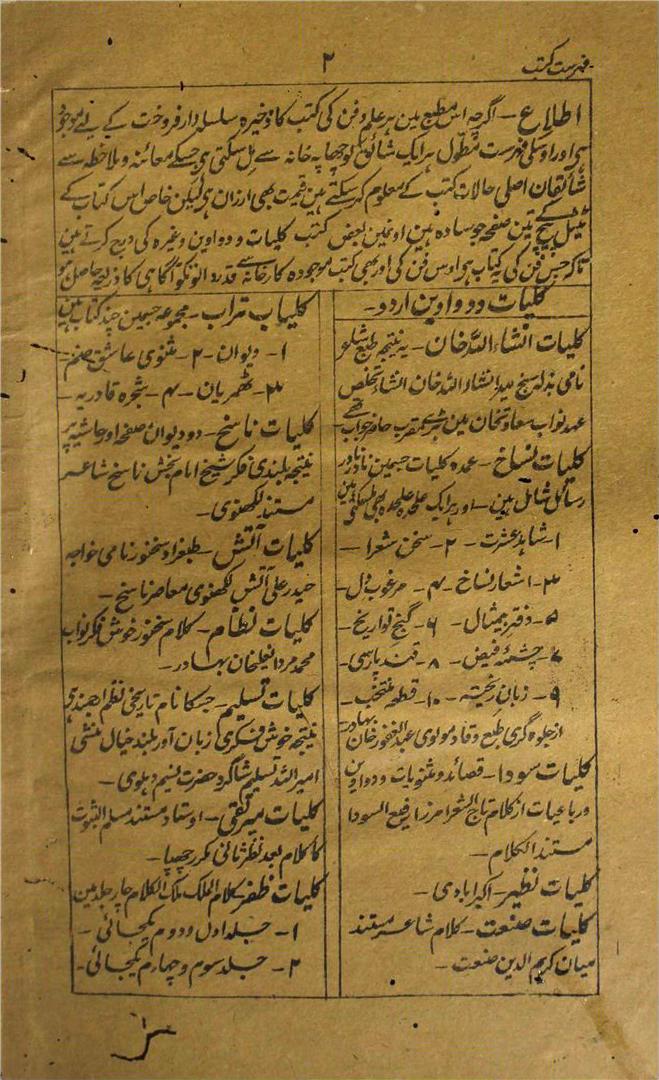 فہرست کتب
۲
اطلاع۔ اگرچہ اس مطبع مین ہر علم و فن کی کتب کا ذخیرہ سلسلہ وار فروخت کے لیے موجود
ہی اور اوسکی فہرست مطول ہر ایک شائق کو چھاپہ خانہ سے مل سکتی ہی جسکے معائنہ و ملاحظہ سے
شائقان اصلی حالات کتب کے معلوم کر سکتے ہین قیمت بھی ارزان ہی لیکن خاص اس کتاب کے
ٹیٹل پیج کے تین صفحہ جو سادہ ہین اونمین بعض کتب کلیات و دواوین وغیرہ کی درج کرتے ہین
تاکہ جس فن کی یہ کتاب ہی اوس فن کی اور بھی کتب موجودہ کارخانہ سے قدردانونکو آگاہی کا ذریعہ حاصل ہو
کلیات و دواوین اردو۔
کلیات انشاء اللہ خان۔ یہ نتیجہ طبع شاعر
نامی بذلہ سنج میر انشاء اللہ خان انشاء تخلص
عہد نواب سعادتخان مین تھے
کلیات نساخ۔ عمدہ کلیات جسمین نادر نادر
رسائل شامل ہین۔ اور ہر ایک علیحدہ علیحدہ بھی مل سکتی ہین
۱۔ شاہد عشرت۔ ۲۔ سخن شعرا۔
۳۔ اشعار نساخ۔ ۴۔ مرغوب دل۔
۵۔ دفتر بیمثال۔ ۶۔ گنج تواریخ۔
۷۔ چشمۂ فیض۔ ۸۔ قند پارسی۔
۹۔ زبان ریختہ۔ ۱۰۔ قطعہ منتخب۔
از جلوہ گری طبع وقاد مولوی عبد الغفور خان بہادر۔
کلیات سودا۔ قصائد و مثنویات و دواوین
و رباعیات از کلام تاج الشعرا مرزا رفیع السودا
مستند الکلام۔
کلیات نظیر۔ اکبرابادی۔
کلیات صنعت۔ کلام شاعر مستند
میان کریم الدین صنعت۔
کلیات تراب۔ مجموعہ جسمین چند کتاب ہین
۱۔ دیوان۔ ۲۔ مثنوی عاشق صنم۔
۳۔ ٹھمریان۔ ۴۔ شجرہ قادریہ۔
کلیات ناسخ۔ دو دیوان صفحہ اور حاشیہ پر
نتیجہ بلندی فکر شیخ امام بخش ناسخ شاعر
مستند لکھنوی۔
کلیات آتش۔ طبعزاد سخنور نامی خواجہ
حیدر علی آتش لکھنوی معاصر ناسخ۔
کلیات نظام۔ کلام سخنور خوش فکر نواب
محمد مردانعلیخان بہادر۔
کلیات تسلیم۔ جسکا نام تاریخی نظم ارجمند ہی
نتیجہ خوش فکری زبان آور بلند خیال منشی
امیر اللہ تسلیم شاگرد حضرت نسیم دہلوی۔
کلیات میر تقی۔ اوستاد مستند مسلم الثبوت
کا کلام بعد نظر ثانی مکرر چھپا۔
کلیات ظفر۔ کلام الملک ملک الکلام چار جلد مین
۱۔ جلد اول و دوم یکجائی۔
۲۔ جلد سوم و چہارم یکجائی۔